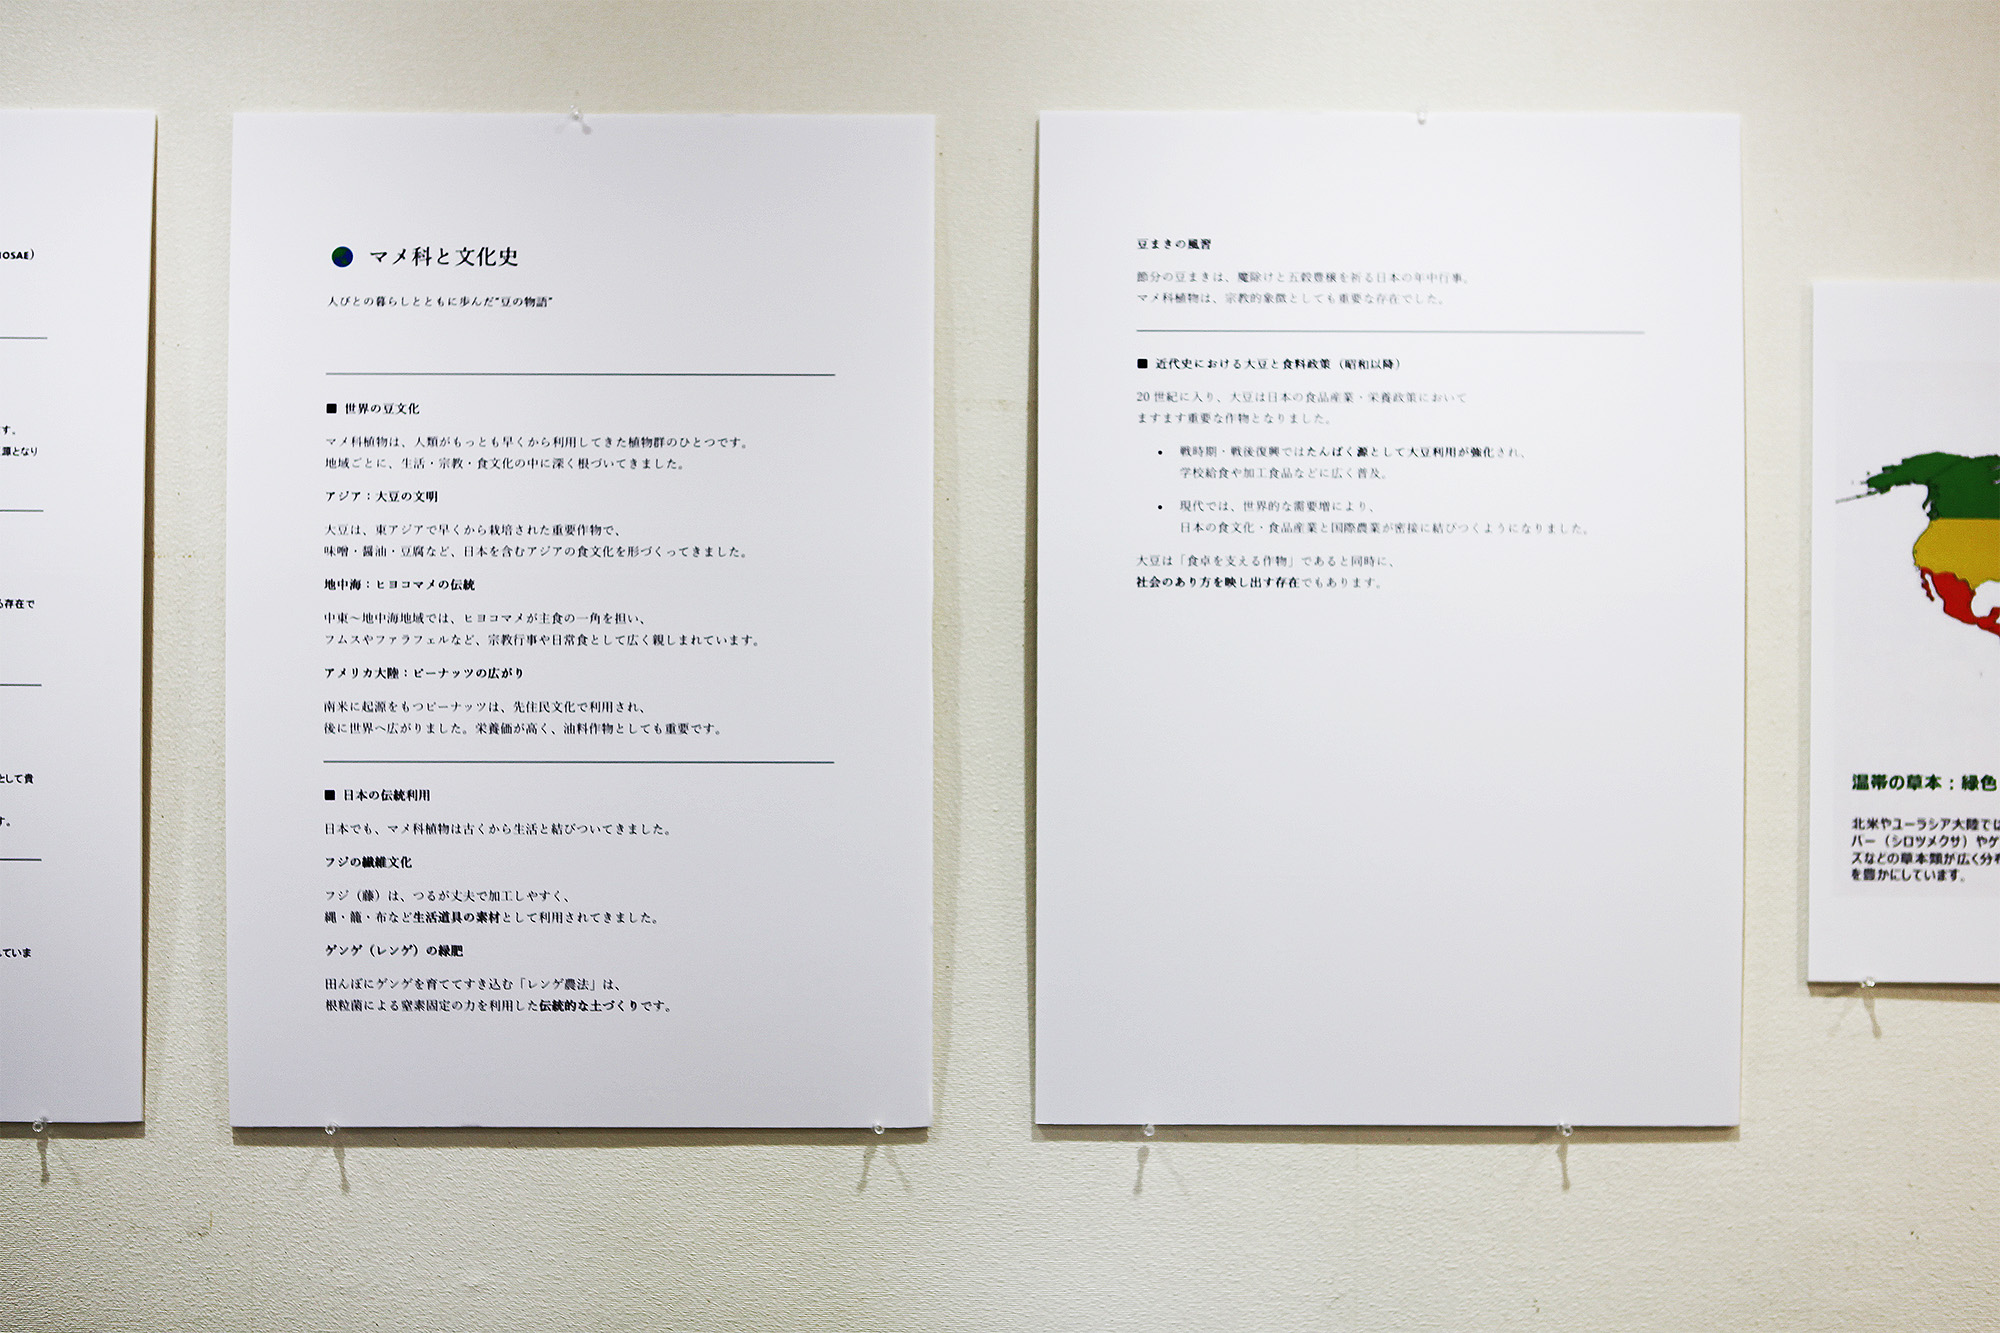 OSAE）
す。
源となり
る存在で
として貴
す。
ていま
マメ科と文化史
人びとの暮らしとともに歩んだ“豆の物語”
■ 世界の豆文化
マメ科植物は、人類がもっとも早くから利用してきた植物群のひとつです。
地域ごとに、生活・宗教・食文化の中に深く根づいてきました。
アジア：大豆の文明
大豆は、東アジアで早くから栽培された重要作物で、
味噌・醤油・豆腐など、日本を含むアジアの食文化を形づくってきました。
地中海：ヒヨコマメの伝統
中東～地中海地域では、ヒヨコマメが主食の一角を担い、
フムスやファラフェルなど、宗教行事や日常食として広く親しまれています。
アメリカ大陸：ピーナッツの広がり
南米に起源をもつピーナッツは、先住民文化で利用され、
後に世界へ広がりました。栄養価が高く、油料作物としても重要です。
■ 日本の伝統利用
日本でも、マメ科植物は古くから生活と結びついてきました。
フジの繊維文化
フジ（藤）は、つるが丈夫で加工しやすく、
縄・籠・布など生活道具の素材として利用されてきました。
ゲンゲ（レンゲ）の緑肥
田んぼにゲンゲを育ててすき込む「レンゲ農法」は、
根粒菌による窒素固定の力を利用した伝統的な土づくりです。
豆まきの風習
節分の豆まきは、魔除けと五穀豊穣を祈る日本の年中行事。
マメ科植物は、宗教的象徴としても重要な存在でした。
■ 近代史における大豆と食料政策（昭和以降）
20 世紀に入り、大豆は日本の食品産業・栄養政策において
ますます重要な作物となりました。
• 戦時期・戦後復興ではたんぱく源として大豆利用が強化され、
学校給食や加工食品などに広く普及。
• 現代では、世界的な需要増により、
日本の食文化・食品産業と国際農業が密接に結びつくようになりました。
大豆は「食卓を支える作物」であると同時に、
社会のあり方を映し出す存在でもあります。
温帯の草本：緑色
北米やユーラシア大陸では
バー（シロツメクサ）やゲ
ズなどの草本類が広く分布
を豊かにしています。